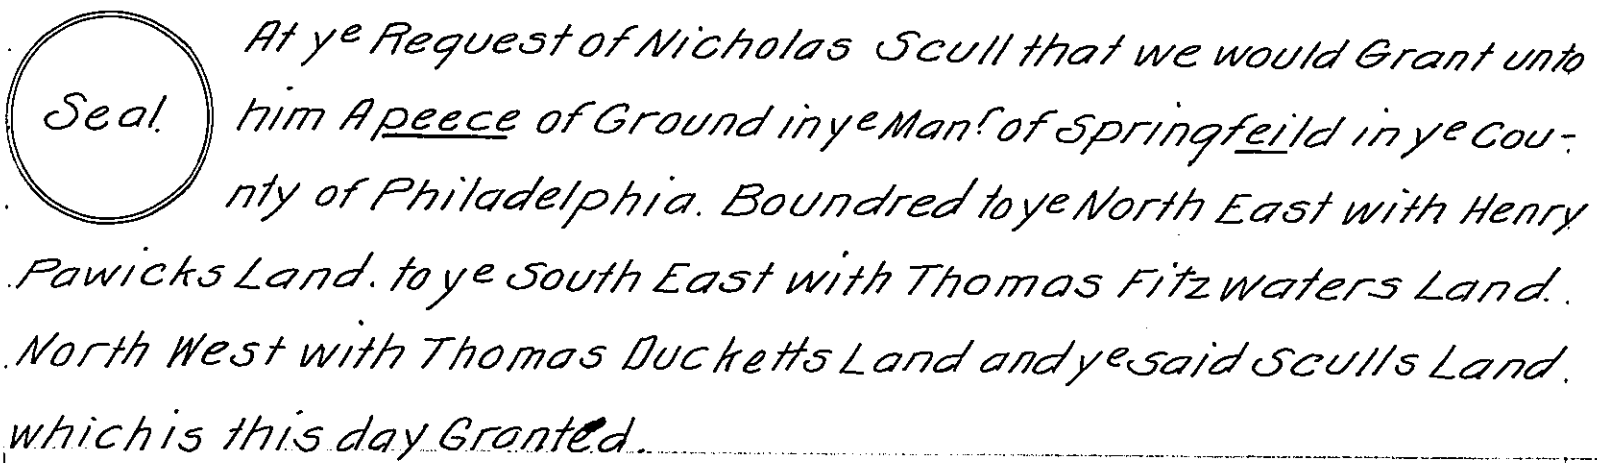 At ye Request of Nicholas Scull that we would Grant unto
Seal.
him A peece of Ground in ye Manr of Springfeild in ye Cou-
nty of Philadelphia. Boundred to ye North East with Henry
Pawicks Land. to ye South East with Thomas Fitzwaters Land.
North West with Thomas Ducketts Land and ye said Sculls Land.
which is this day Granted.